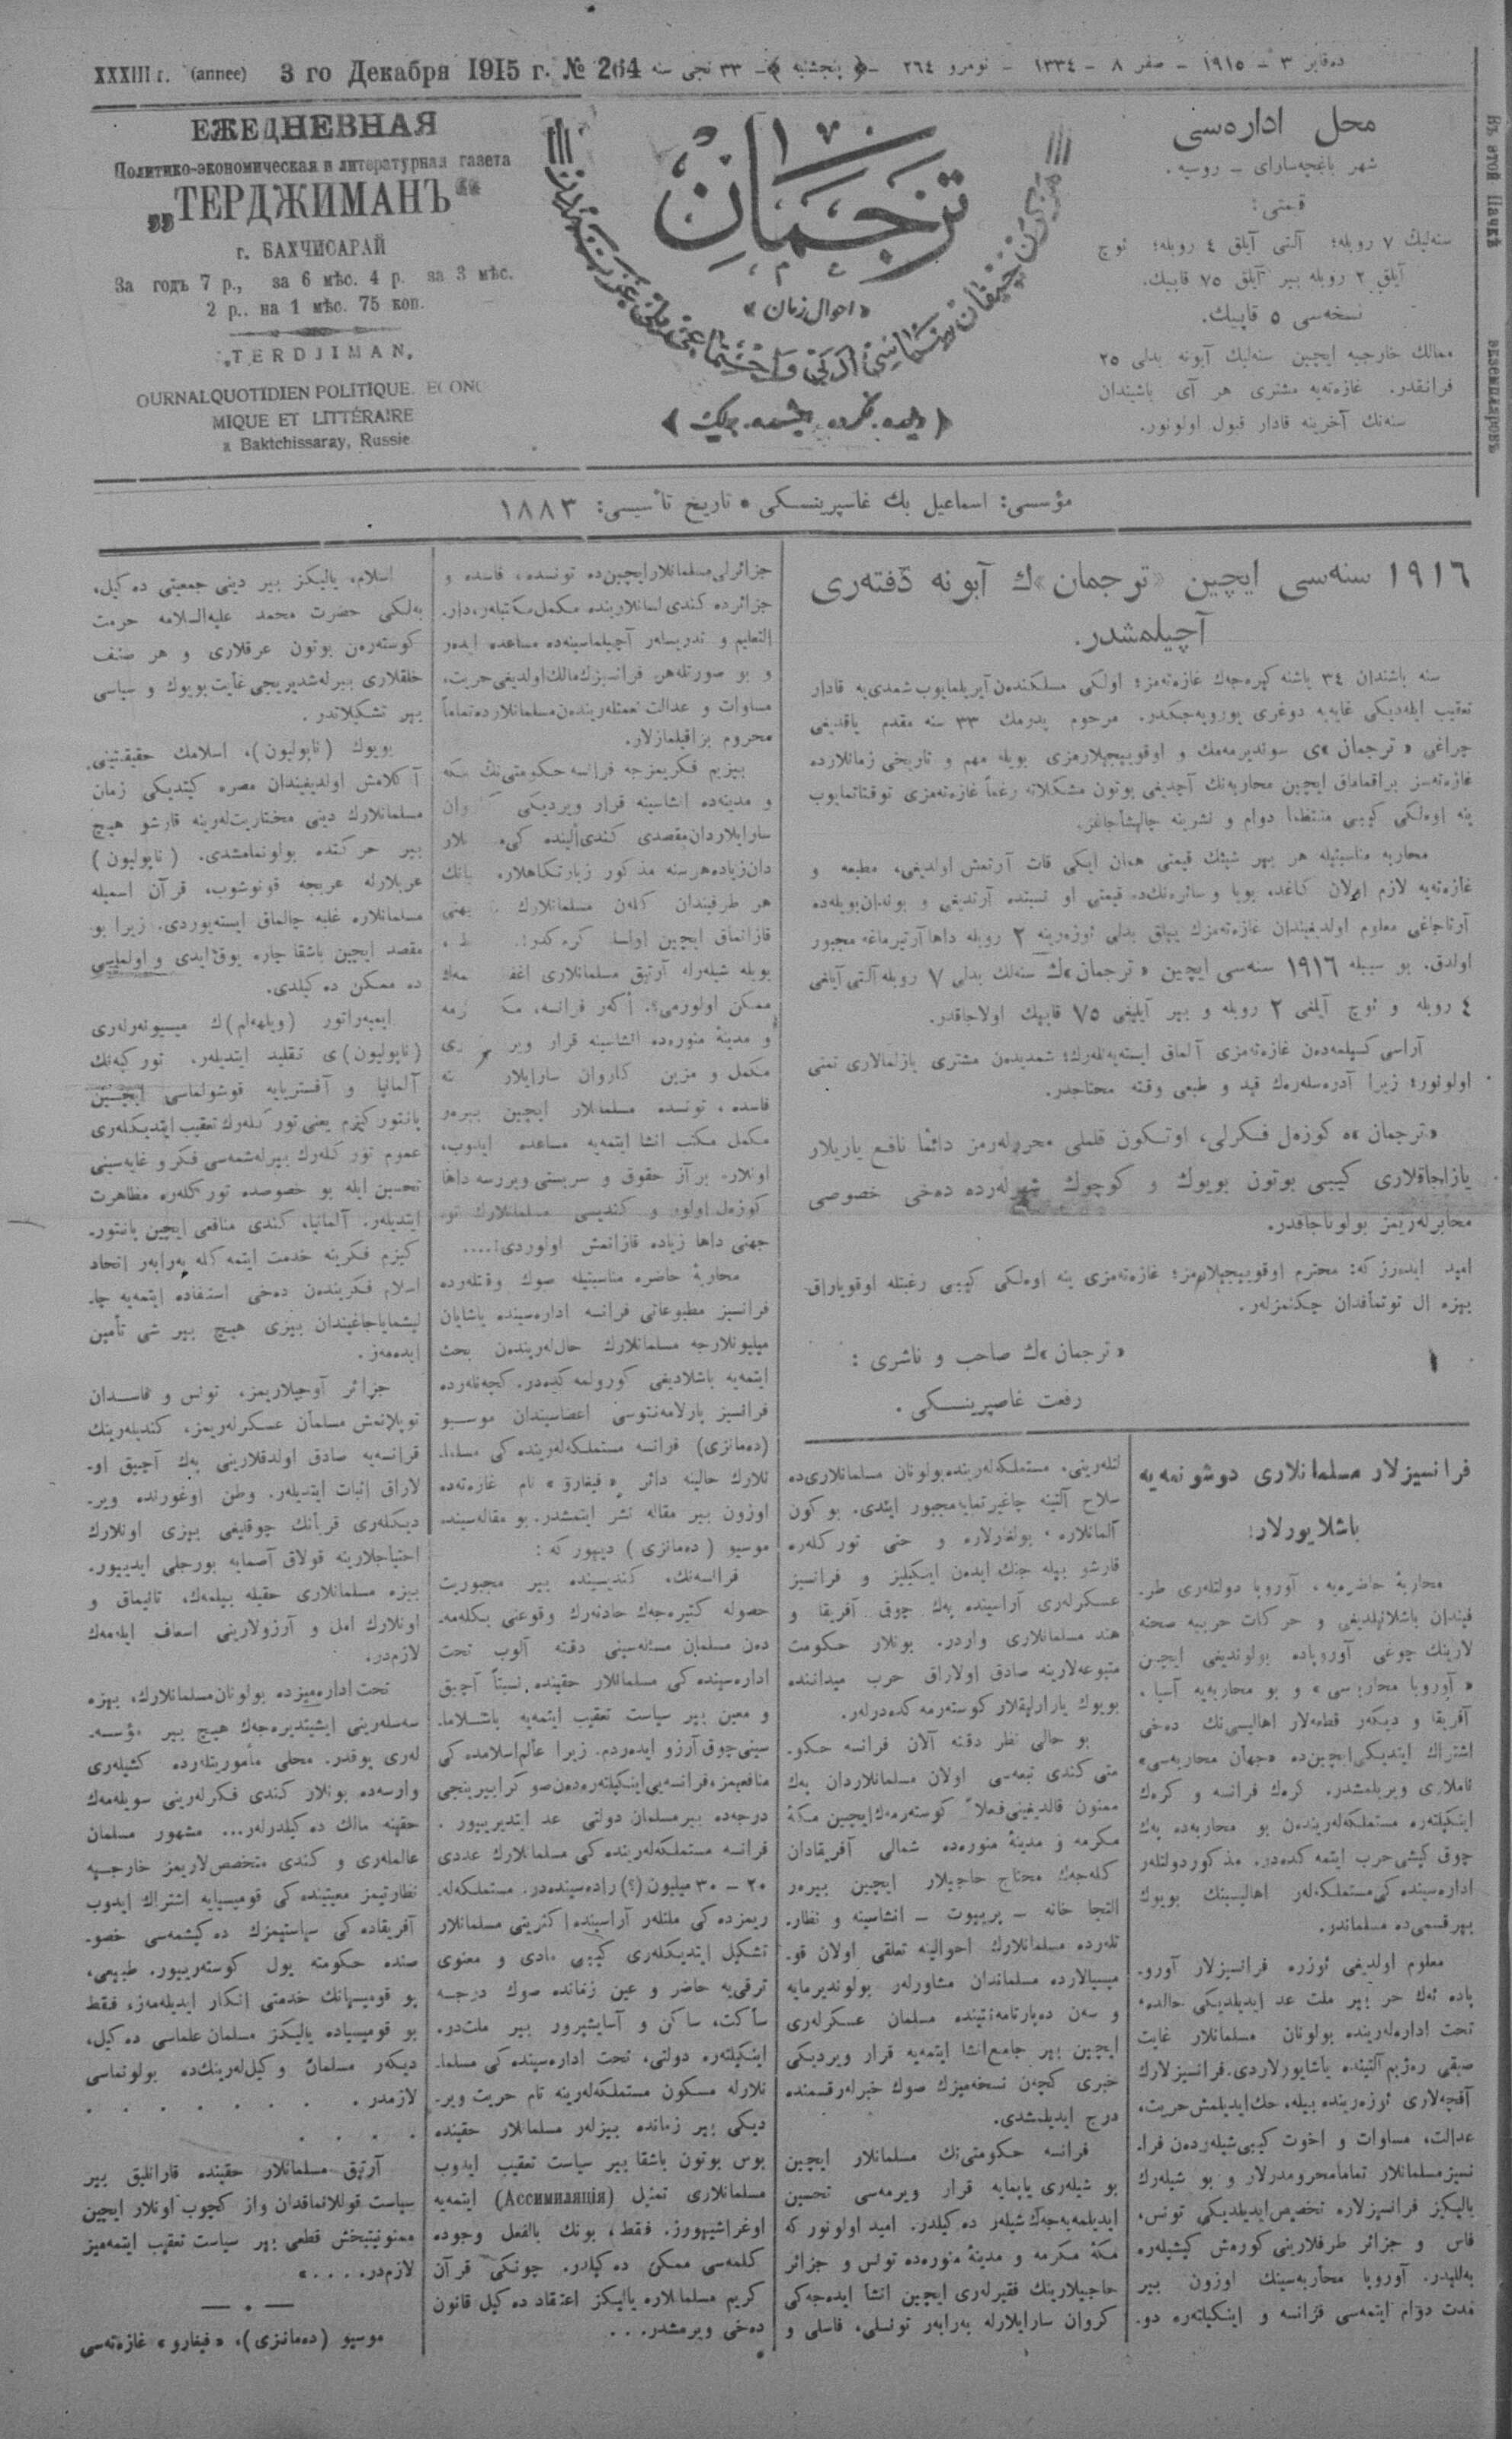 XXXIII г. (annee) 3 го Декабря 1915 г. № 264 دەقابر ٣ – ١٩١٥ – صفر ٨ – ١٣٣٤ – نومرو ٢٦٤ – پنجشنبه – ٣٣ نجی سنه
ЕЖЕДНЕВНАЯ
Политико-экономическая и литературная газета
„ТЕРДЖИМАНЪ“
г. БАХЧИСАРАЙ
За годъ 7 р., за 6 мѣс. 4 р. за 3 мѣс.
2 р.. на 1 мѣс. 75 коп.
„TERDJIMAN„
OURNALQUOTIDIEN POLITIQUE. ECONO
MIQUE ET LITTÉRAIRE
a Baktchissaray, Russie
ترجمان
«احوال زمان»
«دیلده، فکرده، ایشده، برلیك»
محل اداره‌سی
شهر باغچه‌سارای – روسیه.
قیمتی:
سنه‌لیك ٧ روبله؛ آلتی آیلق ٤ روبله؛ ئوچ
آیلق ٢ روبله بیر آیلق ٧٥ قاپیك.
نسخه‌سی ٥ قاپیك.
ممالك خارجیه ایچین سنه‌لیك آبونه بدلی ٢٥
فرانقدر. غازه‌ته‌یه مشتری هر آی باشیندان
سنه‌نك آخرینه قادار قبول اولونور.
Въ этой пачкѣ экземпляровъ
مؤسسی: اسماعیل بك غاسپرینسکی * تاریخ تأسیسی: ١٨٨٣
١٩١٦ سنه‌سی ایچین «ترجمان»ك آبونه دفته‌ری
آچیلمشدر.
سنه باشندان ٣٤ یاشنه کیره‌جك غازه‌ته‌مز؛ اولکی مسلکندەن آیریلمایوب شمدی‌یه قادار
تعقیب ایله‌دیکی غایه‌یه دوغری یورویه‌جکدر. مرحوم پدرمك ٣٣ سنه مقدم یاقدیغی
چراغی «ترجمان»ی سوندیرمه‌مك و اوقویبجیلارمزی بویله مهم و تاریخی زمانلارده
غازه‌ته‌سز براقماماق ایچین محاربه‌نك آچدیغی بوتون مشکلاته رغماً غازه‌ته‌مزی توقتاتمایوب
ینه اوه‌لکی کیبی منتظماً دوام و نشرینه چالیشاجاغز.
محاربه مناسبتیله هر بیر شیئك قیمتی همان ایکی قات آرتمش اولدیغی، مطبعه و
غازه‌ته‌یه لازم اولان کاغد، بویا و سائره‌نك‌ده قیمتی او نسبتده آرتدیغی و بوندان بویله‌ده
آرتاجاغی معلوم اولدیغیندان غازه‌ته‌مزك ییللق بدلی ئوزه‌رینه ٢ روبله داها آرتیرماغه مجبور
اولدق. بو سببله ١٩١٦ سنه‌سی ایچین «ترجمان»ك سنه‌لك بدلی ٧ روبله آلتی آیلغی
٤ روبله و ئوچ آیلغی ٢ روبله و بیر آیلیغی ٧٥ قاپیك اولاجاقدر.
آراسی کسیلمه‌دەن غازه‌ته‌مزی آلماق ایسته‌یه‌نلەرك؛ شمدیدەن مشتری یازلمالاری تمنی
اولونور؛ زیرا آدره‌سله‌رك قید و طبعی وقته محتاجدر.
«ترجمان»ه کوزەل فکرلی، اوتکون قلملی محررلەرمز دائما نافع یازیلار
یازاجاقلاری کیبی بوتون بویوك و کوچوك شهرلەرده دەخی خصوصی
مخابرلەریمز بولوناجاقدر.
امید ایدەرز که: محترم اوقویبجیلارمز؛ غازه‌ته‌مزی ینه اوه‌لکی کیبی رغبتله اوقویاراق
بیزه ال توتماقدان چکنمزلەر.
«ترجمان»ك صاحب و ناشری:
رفعت غاصپرینسکی.
فرانسیزلار مسلمانلاری دوشونمه‌یه
باشلایورلار!
محاربهٔ حاضره‌یه، آوروپا دولتلەری طر‍ـ
فیندان باشلانیلدیغی و حرکات حربیه صحنه
لارینك چوغی آوروپاده بولوندیغی ایچین
«آوروپا محاربه‌سی» و بو محاربه‌یه آسیا،
آفریقا و دیکەر قطعه‌لار اهالیسی‌نك دەخی
اشتراك ایتدیکی ایچین‌ده «جهان محاربه‌سی»
ناملاری ویریلمشدر. کرەك فرانسه و کرەك
اینکیلتەره مستملکه‌لەریندەن بو محاربه‌ده پەك
چوق کیشی حرب ایتمه کده‌در. مذکور دولتلەر
اداره‌سینده کی مستملکه‌لەر اهالیسینك بویوك
بیر قسمی‌ده مسلماندر.
معلوم اولدیغی ئوزره فرانسیزلار آورو‍ـ
پاده ئەك حر بیر ملت عد ایدیلدیکی حالده،
تحت اداره‌لەرینده بولونان مسلمانلار غایت
صیقی رەژیم آلتینده یاشایورلاردی. فرانسیزلارك
آقچه‌لاری ئوزەرینده بیله، حك ایدیلمش حریت،
عدالت، مساوات و اخوت کیبی شیلەردەن فرا‍ـ
نسیز مسلمانلار تماماً محرومدرلار و بو شیلەرك
یالیکز فرانسیزلاره تخصیص ایدیلدیکی تونس،
فاس و جزائر طرفلارینی کورمش کیشیلەره
بەللیدر. آوروپا محاربه‌سینك اوزون بیر
مدت دوام ایتمه‌سی فرانسه و اینکیلتەره دو‍ـ
لتلەرینی، مستملکه‌لەرینده بولونان مسلمانلاری‌ده
سلاح آلتینه چاغیرتمایه مجبور ایتدی. بو کون
آلمانلاره، بولغارلاره و حتی تورکلەره
قارشو بیله جنك ایدەن اینکیلیز و فرانسیز
عسکرلەری آراسینده پەك چوق آفریقا و
هند مسلمانلاری واردر. بونلار حکومت
متبوعه‌لارینه صادق اولاراق حرب میداننده
بویوك یارارلیقلار کوسته‌رمه کده‌درلەر.
بو حالی نظر دقته آلان فرانسه حکو‍ـ
متی کندی تبعه‌سی اولان مسلمانلاردان پەك
ممنون قالدیغینی فعلاً کوسته‌رمەك ایچین مکهٔ
مکرمه و مدینهٔ منوره‌ده شمالی آفریقادان
کله‌جەك محتاج حاجیلار ایچین بیرەر
التجا خانه – پریبوت – انشاسینه و نظار‍ـ
تلەرده مسلمانلارك احوالینه تعلقی اولان قو‍ـ
میسیالارده مسلماندان مشاورلەر بولوندیرمایه
و سەن دەپارتامه‌نتینده مسلمان عسکرلەری
ایچین بیر جامع انشا ایتمه‌یه قرار ویردیکی
خبری کچەن نسخه‌میزك صوك خبرلەر قسمنده
درج ایدیلمشدی.
فرانسه حکومتی‌نك مسلمانلار ایچین
بو شیلەری یاپمایه قرار ویرمه‌سی تحسین
ایدیلمه‌یه‌جەك شیلەر دەکیلدر. امید اولونور که
مکهٔ مکرمه و مدینهٔ منوره‌ده تونس و جزائر
حاجیلارینك فقیرلەری ایچین انشا ایده‌جه‌کی
کروان سارایلارله بەرابەر تونسلی، فاسلی و
جزائرلی مسلمانلار ایچین‌ده تونسده، فاسده و
جزائرده کندی لسانلارینده مکمل مکتبلەر، دار‍ـ
التعلیم و تدریسلەر آچیلماسینه‌ده مساعده ایدەر
و بو صورتله‌هم فرانسیزك مالك اولدیغی حریت،
مساوات و عدالت نعمتلەریندەن مسلمانلارده تماماً
محروم براقیلمازلار.
بیزیم فکریمزجه فرانسه حکومتی‌نك مکه
و مدینه‌ده انشاسینه قرار ویردیکی
سارایلاردان مقصدی کندی الینده کی
دان زیاده هر سنه مذکور زیارتکاهلاره
هر طرفیندان کلەن مسلمانلارك
قازانماق ایچین اولسا کرەکدر!.
بویله شیلەرله آرتیق مسلمانلاری
ممکن اولورمی؟. اکەر فرانسه، مکهٔ
و مدینهٔ منوره‌ده انشاسینه قرار
مکمل و مزین کاروان سارایلار
فاسده، تونسده مسلمانلار ایچین بیرەر
مکمل مکتب انشا ایتمه‌یه مساعده ایدوب،
اونلاره برآز حقوق و سربستی ویررسه داها
کوزەل اولور و کندیسی مسلمانلارك تو‍ـ
جهنی داها زیاده قازانمش اولوردی!....
محاربهٔ حاضره مناسبتیله صوك وقتلەرده
فرانسیز مطبوعاتی فرانسه اداره‌سینده یاشایان
میلیونلارجه مسلمانلارك حال‌لەریندەن بحث
ایتمه‌یه باشلادیغی کورولمه کده‌در. کچەنلەرده
فرانسیز پارلامه‌نتوسی اعضاسیندان موسیو
(دەمانزی) فرانسه مستملکه‌لەرینده کی مسلما‍ـ
نلارك حالینه دائر «فیغارو» نام غازه‌ته‌ده
اوزون بیر مقاله نشر ایتمشدر. بو مقاله‌سینده
موسیو (دەمانزی) دیپور که:
فرانسه‌نك، کندیسینده بیر مجبوریت
حصوله کتیره‌جەك حادثه‌رك وقوعنی بکله‌مه‍ـ
دەن مسلمان مسئله‌سینی دقته آلوب تحت
اداره‌سینده کی مسلمانلار حقینده نسبتاً آچیق
و معین بیر سیاست تعقیب ایتمه‌یه باشلاما‍ـ
سینی چوق آرزو ایدەردم. زیرا عالم اسلامده کی
منافعیمز، فرانسه‌یی اینکیلتەره‌دەن صوکرا بیرینجی
درجه‌ده بیر مسلمان دولتی عد ایتدیرییور.
فرانسه مستملکه‌لەرینده کی مسلمانلارك عددی
٢٠ – ٣٠ میلیون (؟) راده‌سینده‌در. مستملکه‌لە‍ـ
ریمزده کی ملتلەر آراسینده اکثریتی مسلمانلار
تشکیل ایتدیکلەری کیبی مادی و معنوی
ترقی‌یه حاضر و عین زمانده صوك درجه
ساکت، ساکن و آسایشپرور بیر ملت‌در.
اینکیلتەره دولتی، تحت اداره‌سینده کی مسلما‍ـ
نلارله مسکون مستملکه‌لەرینه تام حریت ویر‍ـ
دیکی بیر زمانده بیزلەر مسلمانلار حقینده
بوس بوتون باشقا بیر سیاست تعقیب ایدوب
مسلمانلاری تمثیل (Ассимиляція) ایتمه‌یه
اوغراشیپورز. فقط، بونك بالفعل وجوده
کلمه‌سی ممکن دەکیلدر. چونکی قرآن
کریم مسلمانلاره یالیکز اعتقاد دەکیل قانون
دەخی ویرمشدر...
اسلام، یالیکز بیر دینی جمعیتی دەکیل،
بەلکی حضرت محمد علیه‌السلامه حرمت
کوستەرەن بوتون عرقلاری و هر صنف
خلقلاری بیرلەشدیریجی غایت بویوك و سیاسی
بیر تشکیلاتدر.
بویوك (ناپولیون)، اسلامك حقیقتینی
آکلامش اولدیغیندان مصره کیتدیکی زمان
مسلمانلارك دینی مختاریت‌لەرینه قارشو هیچ
بیر حرکتده بولونمامشدی. (ناپولیون)
عربلارله عربجه قونوشوب، قرآن اسمیله
مسلمانلاره غلبه چالماق ایسته‌یوردی. زیرا بو
مقصد ایچین باشقا چاره یوق ایدی و اولماسی
ده ممکن دەکیلدی.
ایمپه‌راتور (ویلهەلم)ك میسیونەرلەری
(ناپولیون)ی تقلید ایتدیلەر. تورکیه‌نك
آلمانیا و آوستریایه قوشولماسی ایچین
پانتورکیزم یعنی تورکلەرك تعقیب ایتدیکلەری
عموم تورکلەرك بیرلەشمه‌سی فکر و غایه‌سینی
تحسین ایله بو خصوصده تورکلەره مظاهرت
ایتدیلەر. آلمانیا، کندی منافعی ایچین پانتور‍ـ
کیزم فکرینه خدمت ایتمه کله بەرابەر اتحاد
اسلام فکریندەن دەخی استفاده ایتمه‌یه چا‍ـ
لیشمایاجاغیندان بیزی هیچ بیر شی تأمین
ایده‌مەز.
جزائر آوجیلاریمز، تونس و فاسدان
توپلانمش مسلمان عسکرلەریمز، کندیلەرینك
فرانسه‌یه صادق اولدقلارینی پەك آچیق او‍ـ
لاراق اثبات ایتدیلەر. وطن اوغورنده ویر‍ـ
دیکلەری قربانك چوقلیغی بیزی اونلارك
احتیاجلارینه قولاق آصمایه بورجلی ایدییور.
بیزه مسلمانلاری حقیله بیلمەك، تانیماق و
اونلارك امل و آرزولارینی اسعاف ایله‌مەك
لازم‌در.
تحت اداره‌میزده بولونان مسلمانلارك، بیزه
سەسلەرینی ایشیتدیره‌جەك هیچ بیر مؤسسه‍ـ
لەری یوقدر. محلی مأموریتلەرده کشیلەری
وارسه‌ده بونلار کندی فکرلەرینی سویله‌مەك
حقینه مالك دەکیلدرلەر... مشهور مسلمان
عالملەری و کندی متخصص‌لاریمز خارجیه
نظارتیمز معیتینده کی قومیسیایه اشتراك ایدوب
آفریقاده کی سیاستیمزك دەکیشمه‌سی خصو‍ـ
صنده حکومته یول کوسته‌رییور. طبیعی،
بو قومیسیانك خدمتی انکار ایدیله‌مەز، فقط
بو قومیسیاده یالیکز مسلمان علماسی دەکیل،
دیکەر مسلمان وکیل‌لەرینك‌ده بولونماسی
لازمدر. . . . . . . . .
. . . . .
آرتیق مسلمانلار حقینده قارانلیق بیر
سیاست قوللانماقدان واز کچوب اونلار ایچین
ممنونیتبخش قطعی بیر سیاست تعقیب ایتمه‌میز
لازم‌در....»
موسیو (دەمانزی)، «فیغارو» غازه‌ته‌سی